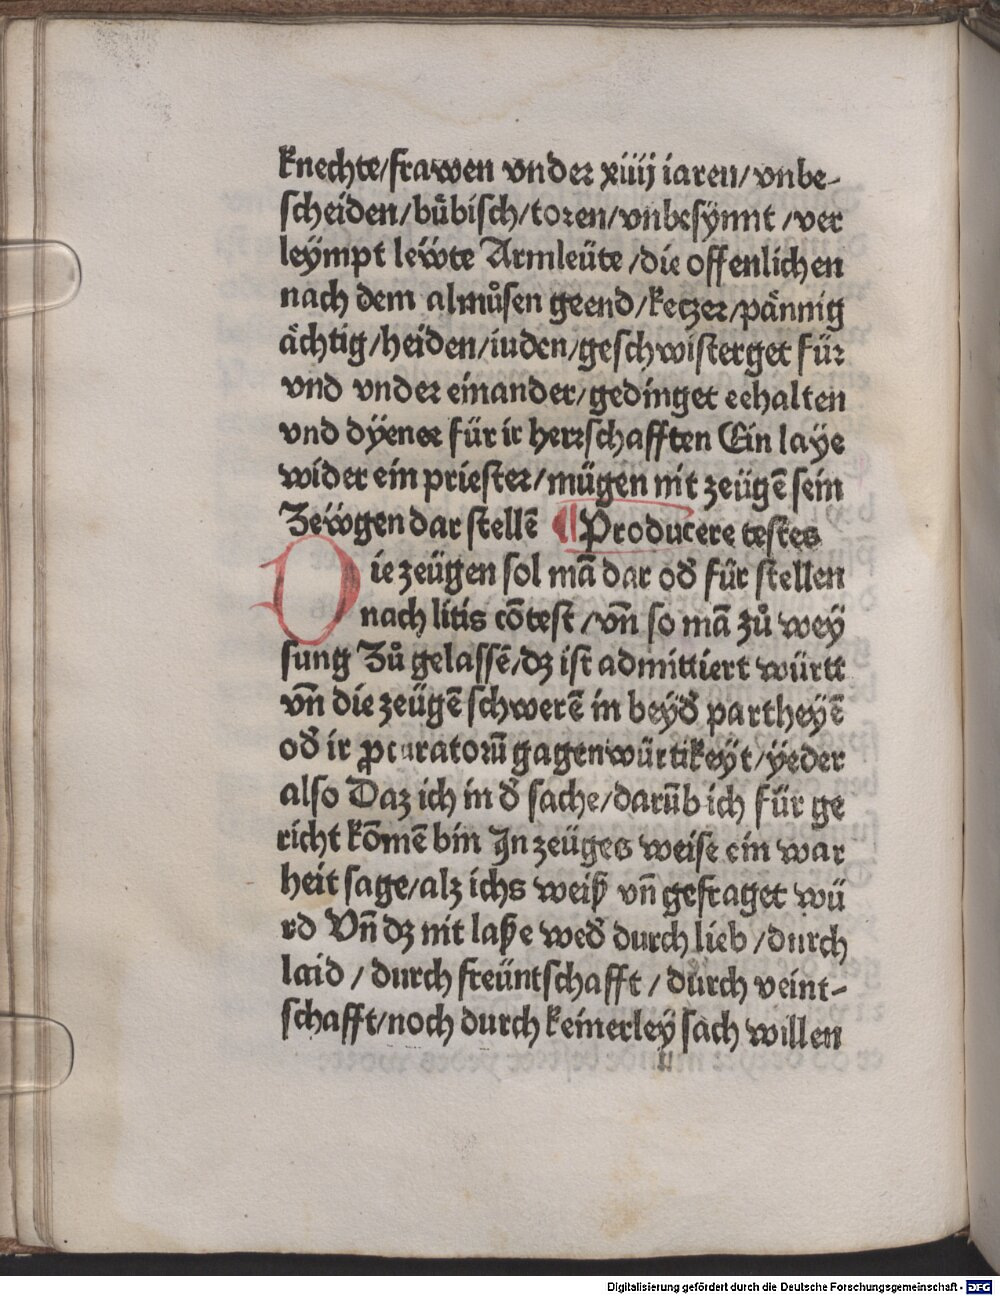 knechte/frawen vnder xiiij iaren/vnbe-
scheiden/bůbisch/toren/vnbesynnt/ver
leympt leẅte Armleüte/die offenlichen
nach dem almůsen geend/keczer/pännig
ächtig/heiden/iuden/geschwisterget für
vnd vnder einander/gedinget eehalten
vnd dÿener für ir herrschafften Ein laÿe
wider ein priester/mügen nit zeügē sein
Zeẅgen dar stellē ¶ Producere testes
Die zeügen sol mā dar oď für stellen
nach litis cōtest/vn̄ so mā zů weÿ
sung Zů gelassē/dz ist admittiert württ
vn̄ die zeügē schwerē in beÿď partheÿē
oď ir ꝓcuratorū gagenwürtikeÿt/ÿeder
also Daz ich in ď sache/darūb ich für ge
richt kōmē bin In zeüges weise ein war
heit sage/alz ichs weiß vn̄ gefraget wü
rd Vn̄ dz nit laße weď durch lieb/durch
laid/durch freüntschafft/durch veint-
schafft/noch durch keinerleÿ sach willen
Digitalisierung gefördert durch die Deutsche Forschungsgemeinschaft - DFG